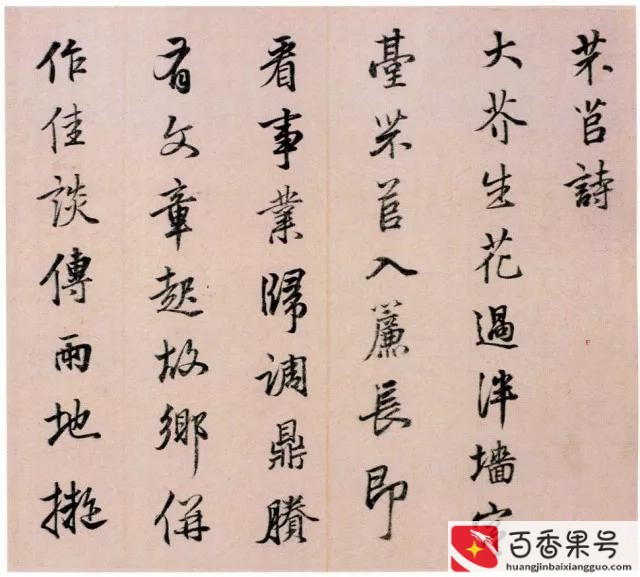 芣苢詩
大芥生花過泮墻
臺芣苢入簾長即
看事業歸調鼎賸
有文章起故鄉併
作佳談傳兩地擬
百香果号
huangjinbaixiangguo.com